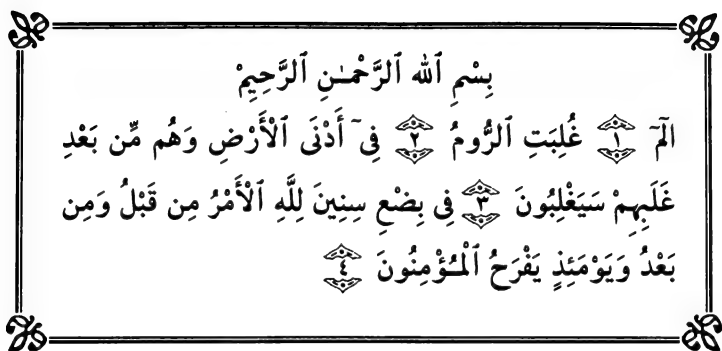 بِسْمِ ٱللهِ ٱلرَّحْمَـٰنِ ٱلرَّحِيمْ
الٓمٓ ١ غُلِبَتِ ٱلرُّومُ ٢ فِىٓ أَدْنَى ٱلْأَرْضِ وَهُم مِّن بَعْدِ
غَلَبِهِمْ سَيَغْلِبُونَ ٣ فِى بِضْعِ سِنِينَ لِلَّهِ ٱلْأَمْرُ مِن قَبْلُ وَمِن
بَعْدُ وَيَوْمَئِذٍ يَفْرَحُ ٱلْمُؤْمِنُونَ ٤